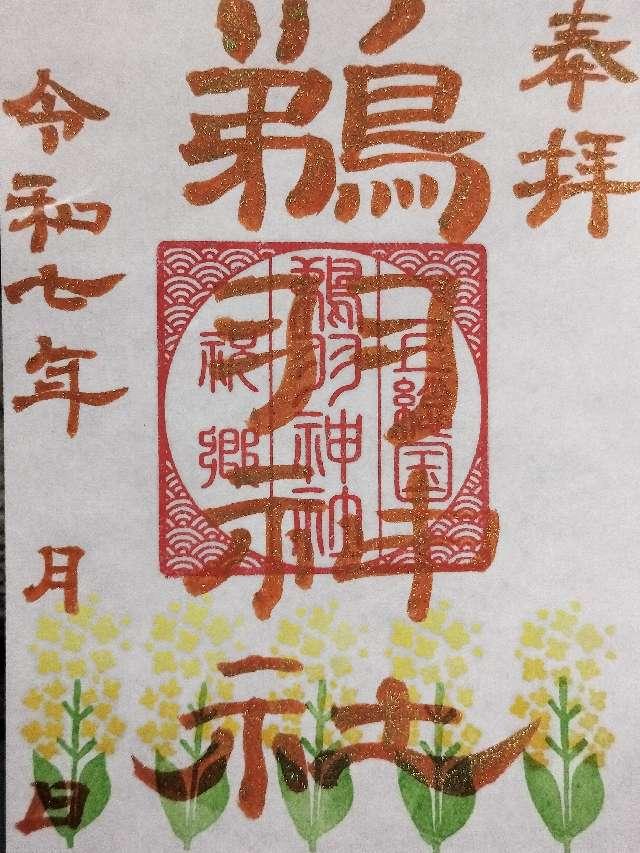 奉拝
鵜羽神社
上総国
鵜羽神社
令和七年 月 日